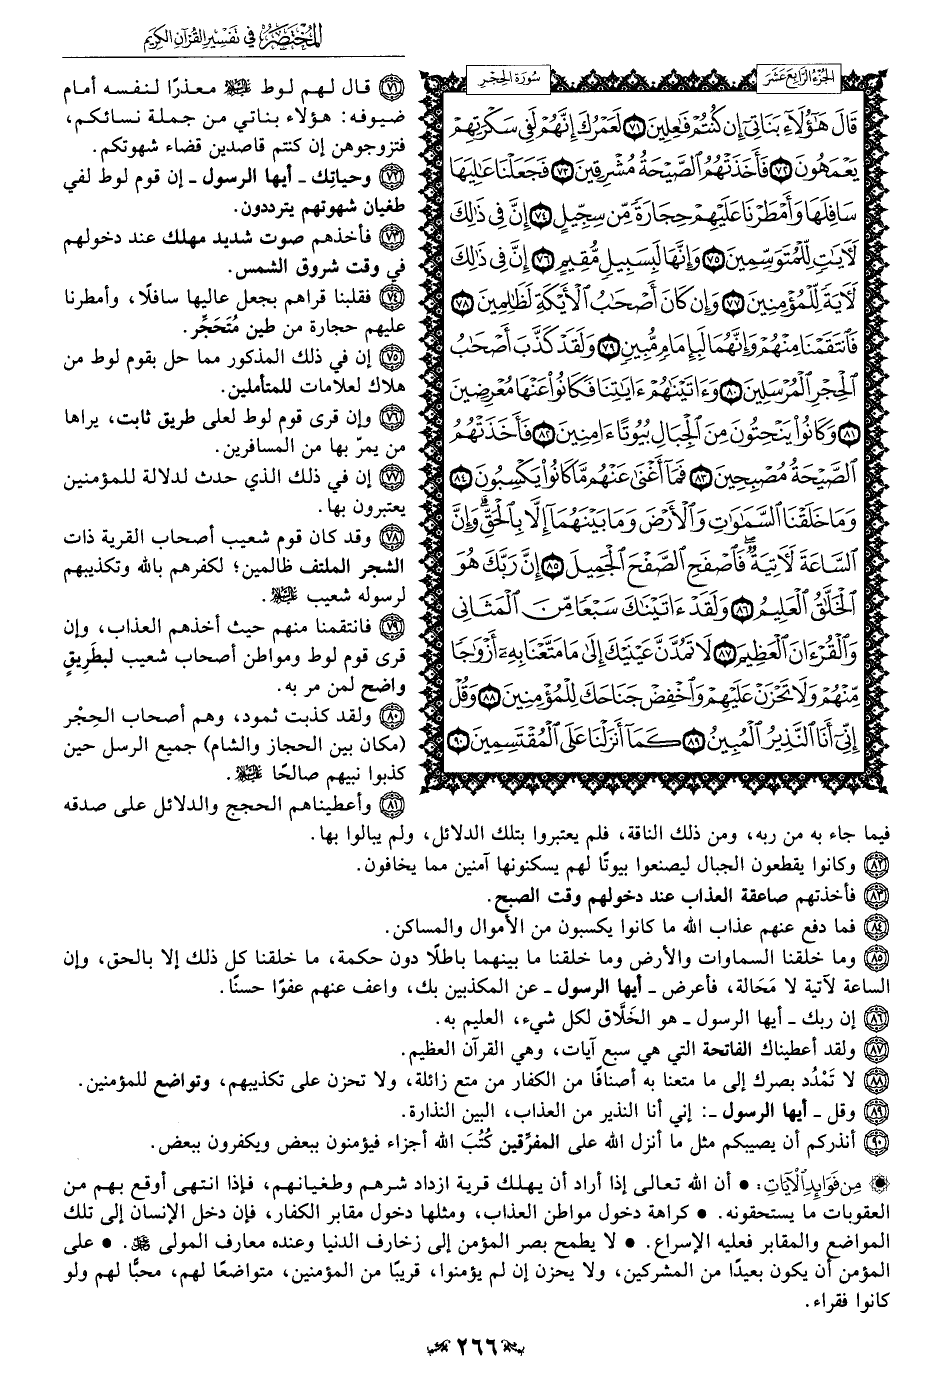 المختصر في تفسير القرآن الكريم
الجزء الرابع عشر
سورة الحجر
قَالَ هَٰٓؤُلَآءِ بَنَاتِيٓ إِن كُنتُمۡ فَٰعِلِينَ ٧١ لَعَمۡرُكَ إِنَّهُمۡ لَفِي سَكۡرَتِهِمۡ
يَعۡمَهُونَ ٧٢ فَأَخَذَتۡهُمُ ٱلصَّيۡحَةُ مُشۡرِقِينَ ٧٣ فَجَعَلۡنَا عَٰلِيَهَا
سَافِلَهَا وَأَمۡطَرۡنَا عَلَيۡهِمۡ حِجَارَةٗ مِّن سِجِّيلٍ ٧٤ إِنَّ فِي ذَٰلِكَ
لَأٓيَٰتٖ لِّلۡمُتَوَسِّمِينَ ٧٥ وَإِنَّهَا لَبِسَبِيلٖ مُّقِيمٍ ٧٦ إِنَّ فِي ذَٰلِكَ
لَأٓيَةٗ لِّلۡمُؤۡمِنِينَ ٧٧ وَإِن كَانَ أَصۡحَٰبُ ٱلۡأَيۡكَةِ لَظَٰلِمِينَ ٧٨
فَٱنتَقَمۡنَا مِنۡهُمۡ وَإِنَّهُمَا لَبِإِمَامٖ مُّبِينٖ ٧٩ وَلَقَدۡ كَذَّبَ أَصۡحَٰبُ
ٱلۡحِجۡرِ ٱلۡمُرۡسَلِينَ ٨٠ وَءَاتَيۡنَٰهُمۡ ءَايَٰتِنَا فَكَانُواْ عَنۡهَا مُعۡرِضِينَ
٨١ وَكَانُواْ يَنۡحِتُونَ مِنَ ٱلۡجِبَالِ بُيُوتًا ءَامِنِينَ ٨٢ فَأَخَذَتۡهُمُ
ٱلصَّيۡحَةُ مُصۡبِحِينَ ٨٣ فَمَآ أَغۡنَىٰ عَنۡهُم مَّا كَانُواْ يَكۡسِبُونَ ٨٤
وَمَا خَلَقۡنَا ٱلسَّمَٰوَٰتِ وَٱلۡأَرۡضَ وَمَا بَيۡنَهُمَآ إِلَّا بِٱلۡحَقِّۗ وَإِنَّ
ٱلسَّاعَةَ لَأٓتِيَةٞۖ فَٱصۡفَحِ ٱلصَّفۡحَ ٱلۡجَمِيلَ ٨٥ إِنَّ رَبَّكَ هُوَ
ٱلۡخَلَّٰقُ ٱلۡعَلِيمُ ٨٦ وَلَقَدۡ ءَاتَيۡنَٰكَ سَبۡعٗا مِّنَ ٱلۡمَثَانِي
وَٱلۡقُرۡءَانَ ٱلۡعَظِيمَ ٨٧ لَا تَمُدَّنَّ عَيۡنَيۡكَ إِلَىٰ مَا مَتَّعۡنَا بِهِۦٓ أَزۡوَٰجٗا
مِّنۡهُمۡ وَلَا تَحۡزَنۡ عَلَيۡهِمۡ وَٱخۡفِضۡ جَنَاحَكَ لِلۡمُؤۡمِنِينَ ٨٨ وَقُلۡ
إِنِّيٓ أَنَا ٱلنَّذِيرُ ٱلۡمُبِينُ ٨٩ كَمَآ أَنزَلۡنَا عَلَى ٱلۡمُقۡتَسِمِينَ ٩٠
٧١ قال لهم لوط عليه السلام معذرًا لنفسه أمام
ضيوفه: هؤلاء بناتي من جملة نسائكم،
فتزوجوهن إن كنتم قاصدين قضاء شهوتكم.
٧٢ وحياتِك ـ أيها الرسول ـ إن قوم لوط لفي
طغيان شهوتهم يترددون.
٧٣ فأخذهم صوت شديد مهلك عند دخولهم
في وقت شروق الشمس.
٧٤ فقلبنا قراهم بجعل عاليها سافلًا، وأمطرنا
عليهم حجارة من طين مُتَحَجِّر.
٧٥ إن في ذلك المذكور مما حل بقوم لوط من
هلاك لعلامات للمتأملين.
٧٦ وإن قرى قوم لوط لعلى طريق ثابت، يراها
من يمرّ بها من المسافرين.
٧٧ إن في ذلك الذي حدث لدلالة للمؤمنين
يعتبرون بها.
٧٨ وقد كان قوم شعيب أصحاب القرية ذات
الشجر الملتف ظالمين؛ لكفرهم بالله وتكذيبهم
لرسوله شعيب عليه السلام.
٧٩ فانتقمنا منهم حيث أخذهم العذاب، وإن
قرى قوم لوط ومواطن أصحاب شعيب لبطَرِيقٍ
واضح لمن مر به.
٨٠ ولقد كذبت ثمود، وهم أصحاب الحِجْر
(مكان بين الحجاز والشام) جميع الرسل حين
كذبوا نبيهم صالحًا عليه السلام.
٨١ وأعطيناهم الحجج والدلائل على صدقه
فيما جاء به من ربه، ومن ذلك الناقة، فلم يعتبروا بتلك الدلائل، ولم يبالوا بها.
٨٢ وكانوا يقطعون الجبال ليصنعوا بيوتًا لهم يسكنونها آمنين مما يخافون.
٨٣ فأخذتهم صاعقة العذاب عند دخولهم وقت الصبح.
٨٤ فما دفع عنهم عذاب الله ما كانوا يكسبون من الأموال والمساكن.
٨٥ وما خلقنا السماوات والأرض وما خلقنا ما بينهما باطلًا دون حكمة، ما خلقنا كل ذلك إلا بالحق، وإن
الساعة لآتية لا مَحَالة، فأعرض ـ أيها الرسول ـ عن المكذبين بك، واعف عنهم عفوًا حسنًا.
٨٦ إن ربك ـ أيها الرسول ـ هو الخَلَّاق لكل شيء، العليم به.
٨٧ ولقد أعطيناك الفاتحة التي هي سبع آيات، وهي القرآن العظيم.
٨٨ لا تَمْدُد بصرك إلى ما متعنا به أصنافًا من الكفار من متع زائلة، ولا تحزن على تكذيبهم، وتواضع للمؤمنين.
٨٩ وقل ـ أيها الرسول ـ: إني أنا النذير من العذاب، البين النذارة.
٩٠ أنذركم أن يصيبكم مثل ما أنزل الله على المفرِّقين كُتُبَ الله أجزاء فيؤمنون ببعض ويكفرون ببعض.
مِن فَوَائِدِ الآيَاتِ: • أن الله تعالى إذا أراد أن يهلك قرية ازداد شرهم وطغيانهم، فإذا انتهى أوقع بهم من
العقوبات ما يستحقونه. • كراهة دخول مواطن العذاب، ومثلها دخول مقابر الكفار، فإن دخل الإنسان إلى تلك
المواضع والمقابر فعليه الإسراع. • لا يطمح بصر المؤمن إلى زخارف الدنيا وعنده معارف المولى ﷻ. • على
المؤمن أن يكون بعيدًا من المشركين، ولا يحزن إن لم يؤمنوا، قريبًا من المؤمنين، متواضعًا لهم، محبًّا لهم ولو
كانوا فقراء.
٢٦٦